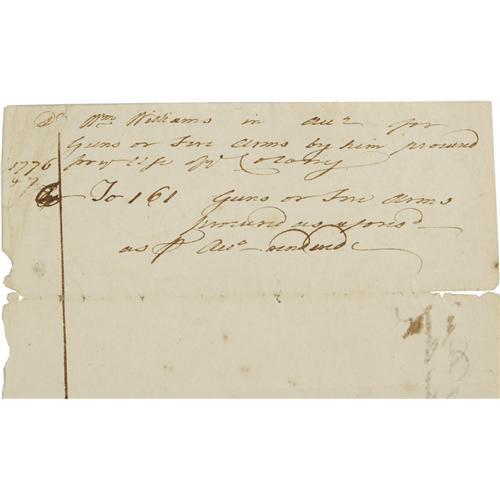 Dr Wm Williams in acct for
Guns or Fire Arms by him procurd
for ye Use of ye Colony
1776
& 7
To 161 Guns or Fire Arms
procurd as aforesd
as pr Acct rendrd